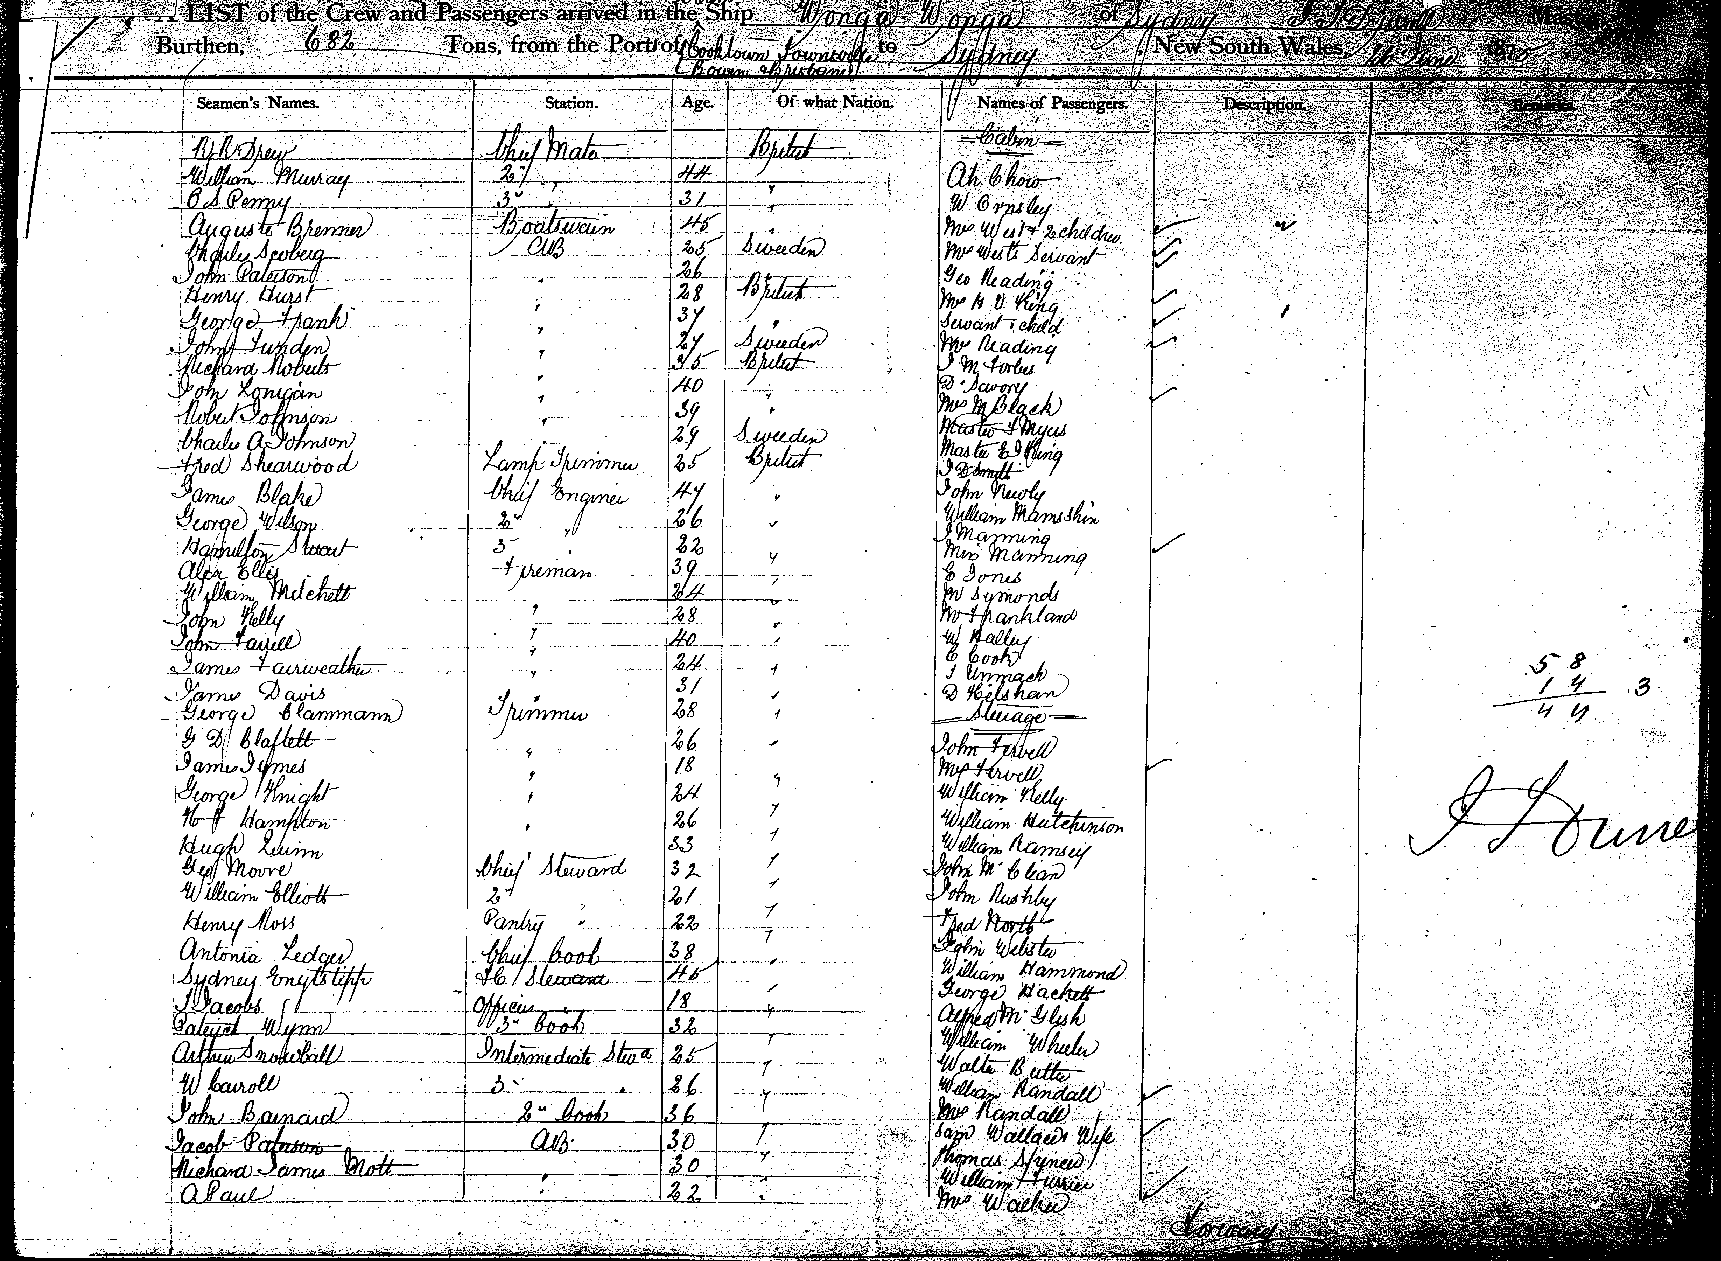 A LIST of the Crew and Passengers arrived in the Ship Wonga Wonga of Sydney
Burthen, 682 Tons, from the Ports of Cooktown Townsville to Sydney New South Wales, June
(Bowen Brisbane)
Seamen's Names. Station. Age. Of what Nation. Names of Passengers. Description. Remarks.
Drew Chief Mate British — Cabin —
William Murray 2nd " 44 " Ah Chow
C S Penny 3rd " 31 " W Ornsley
Auguste Brenner Boatswain 45 " Mrs West & 2 children
Charles Seaberg AB 25 Sweeden Mrs Wests Servant
John Paterson " 26 " Geo Reading
Henry Hurst " 28 British Mrs H V King
George Frank " 37 " Servant & child
John Funden " 27 Sweeden Mrs Reading
Richard Roberts " 35 British J M Forbes
John Lonigan " 40 " D Savory
Robert Johnson " 39 " Mrs M Black
Charles A Johnson " 29 Sweeden Master F Myers
Fred Shearwood Lamp Trimmer 25 British Master E J King
J D Smith
James Blake Chief Engineer 47 " John Newly
George Wilson 2nd " 26 " William
Hamilton Stuart 3 " 22 " J Manning
Miss Manning
Alex Ellis Fireman 39 " E Jones
William Mitchell " 24 " M Symonds
John Kelly " 28 " Mr Frankland
John Farrell " 40 " W Halley
E Cook
James Fairweather " 24 " J Unmack
James Davis " 31 " D Kelshan
George Clammann Trimmer 28 " — Steerage —
G D " 26 " John Fervell
James James " 18 " Mrs Fervell
George Knight " 24 " William Kelly
H J Hampton " 26 " William Hutchinson
Hugh Quinn " 33 " William Ramsey
Geo Moore Chief Steward 32 " John McClean
William Elliott 2nd " 21 " John Rushby
Henry Ross Pantry " 22 " Fred North
Antonia Ledger Chief Cook 38 " John Webster
Sydney F.C. Steward 45 " William Hammond
George Hackett
J Jacobs Officers " 18 " Alfred McGlish
Patrick Wynn 3rd Cook 32 " William Wheeler
Arthur Snowball Intermediate Stewd 25 " Walter Butte
W Carroll 3rd " 26 " William Randall
John Barnard 2nd Cook 36 " Mrs Randall
Jacob Paterson AB 30 " Sam Wallace & Wife
Richard James Mott " 30 " Thomas Spencer
William Furrier
A Paul " 22 " Mrs Walker
58
14 3
44